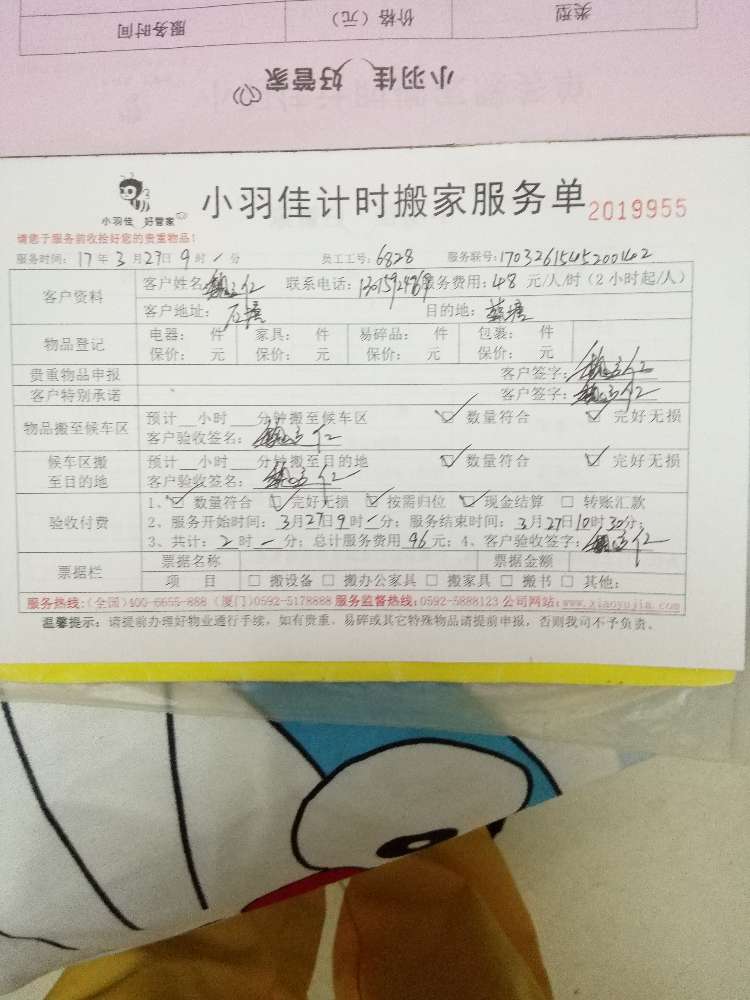 类型 价格（元） 服务时间
小羽佳 好管家
小羽佳 好管家
小羽佳计时搬家服务单 2019955
请您于服务前收拾好您的贵重物品！
服务时间：17年3月27日9时-分 员工工号：6828 服务联号：17032615452001402
客户资料
客户姓名 联系电话： 服务费用：48元/人/时（2小时起/人）
客户地址： 目的地：蔡塘
物品登记
电器： 件 家具： 件 易碎品： 件 包裹： 件
保价： 元 保价： 元 保价： 元 保价： 元
贵重物品申报 客户签字：
客户特别承诺 客户签字：
物品搬至候车区
预计__小时___分钟搬至候车区 ☑ 数量符合 ☑ 完好无损
客户验收签名：
候车区搬至目的地
预计__小时___分钟搬至目的地 ☑ 数量符合 ☑ 完好无损
客户验收签名：
验收付费
1、☑ 数量符合 ☑ 完好无损 ☑ 按需归位 ☑ 现金结算 □ 转账汇款
2、服务开始时间：3月27日9时-分；服务结束时间：3月27日10时30分；
3、共计：2时-分；总计服务费用96元；4、客户验收签字：
票据栏
票据名称 票据金额
项 目 □ 搬设备 □ 搬办公家具 □ 搬家具 □ 搬书 □ 其他：
服务热线：（全国）400-6655-888（厦门）0592-5178888 服务监督热线：0592-5888123 公司网站：www.xiaoyujia.com
温馨提示：请提前办理好物业通行手续，如有贵重、易碎或其它特殊物品请提前申报，否则我司不予负责。